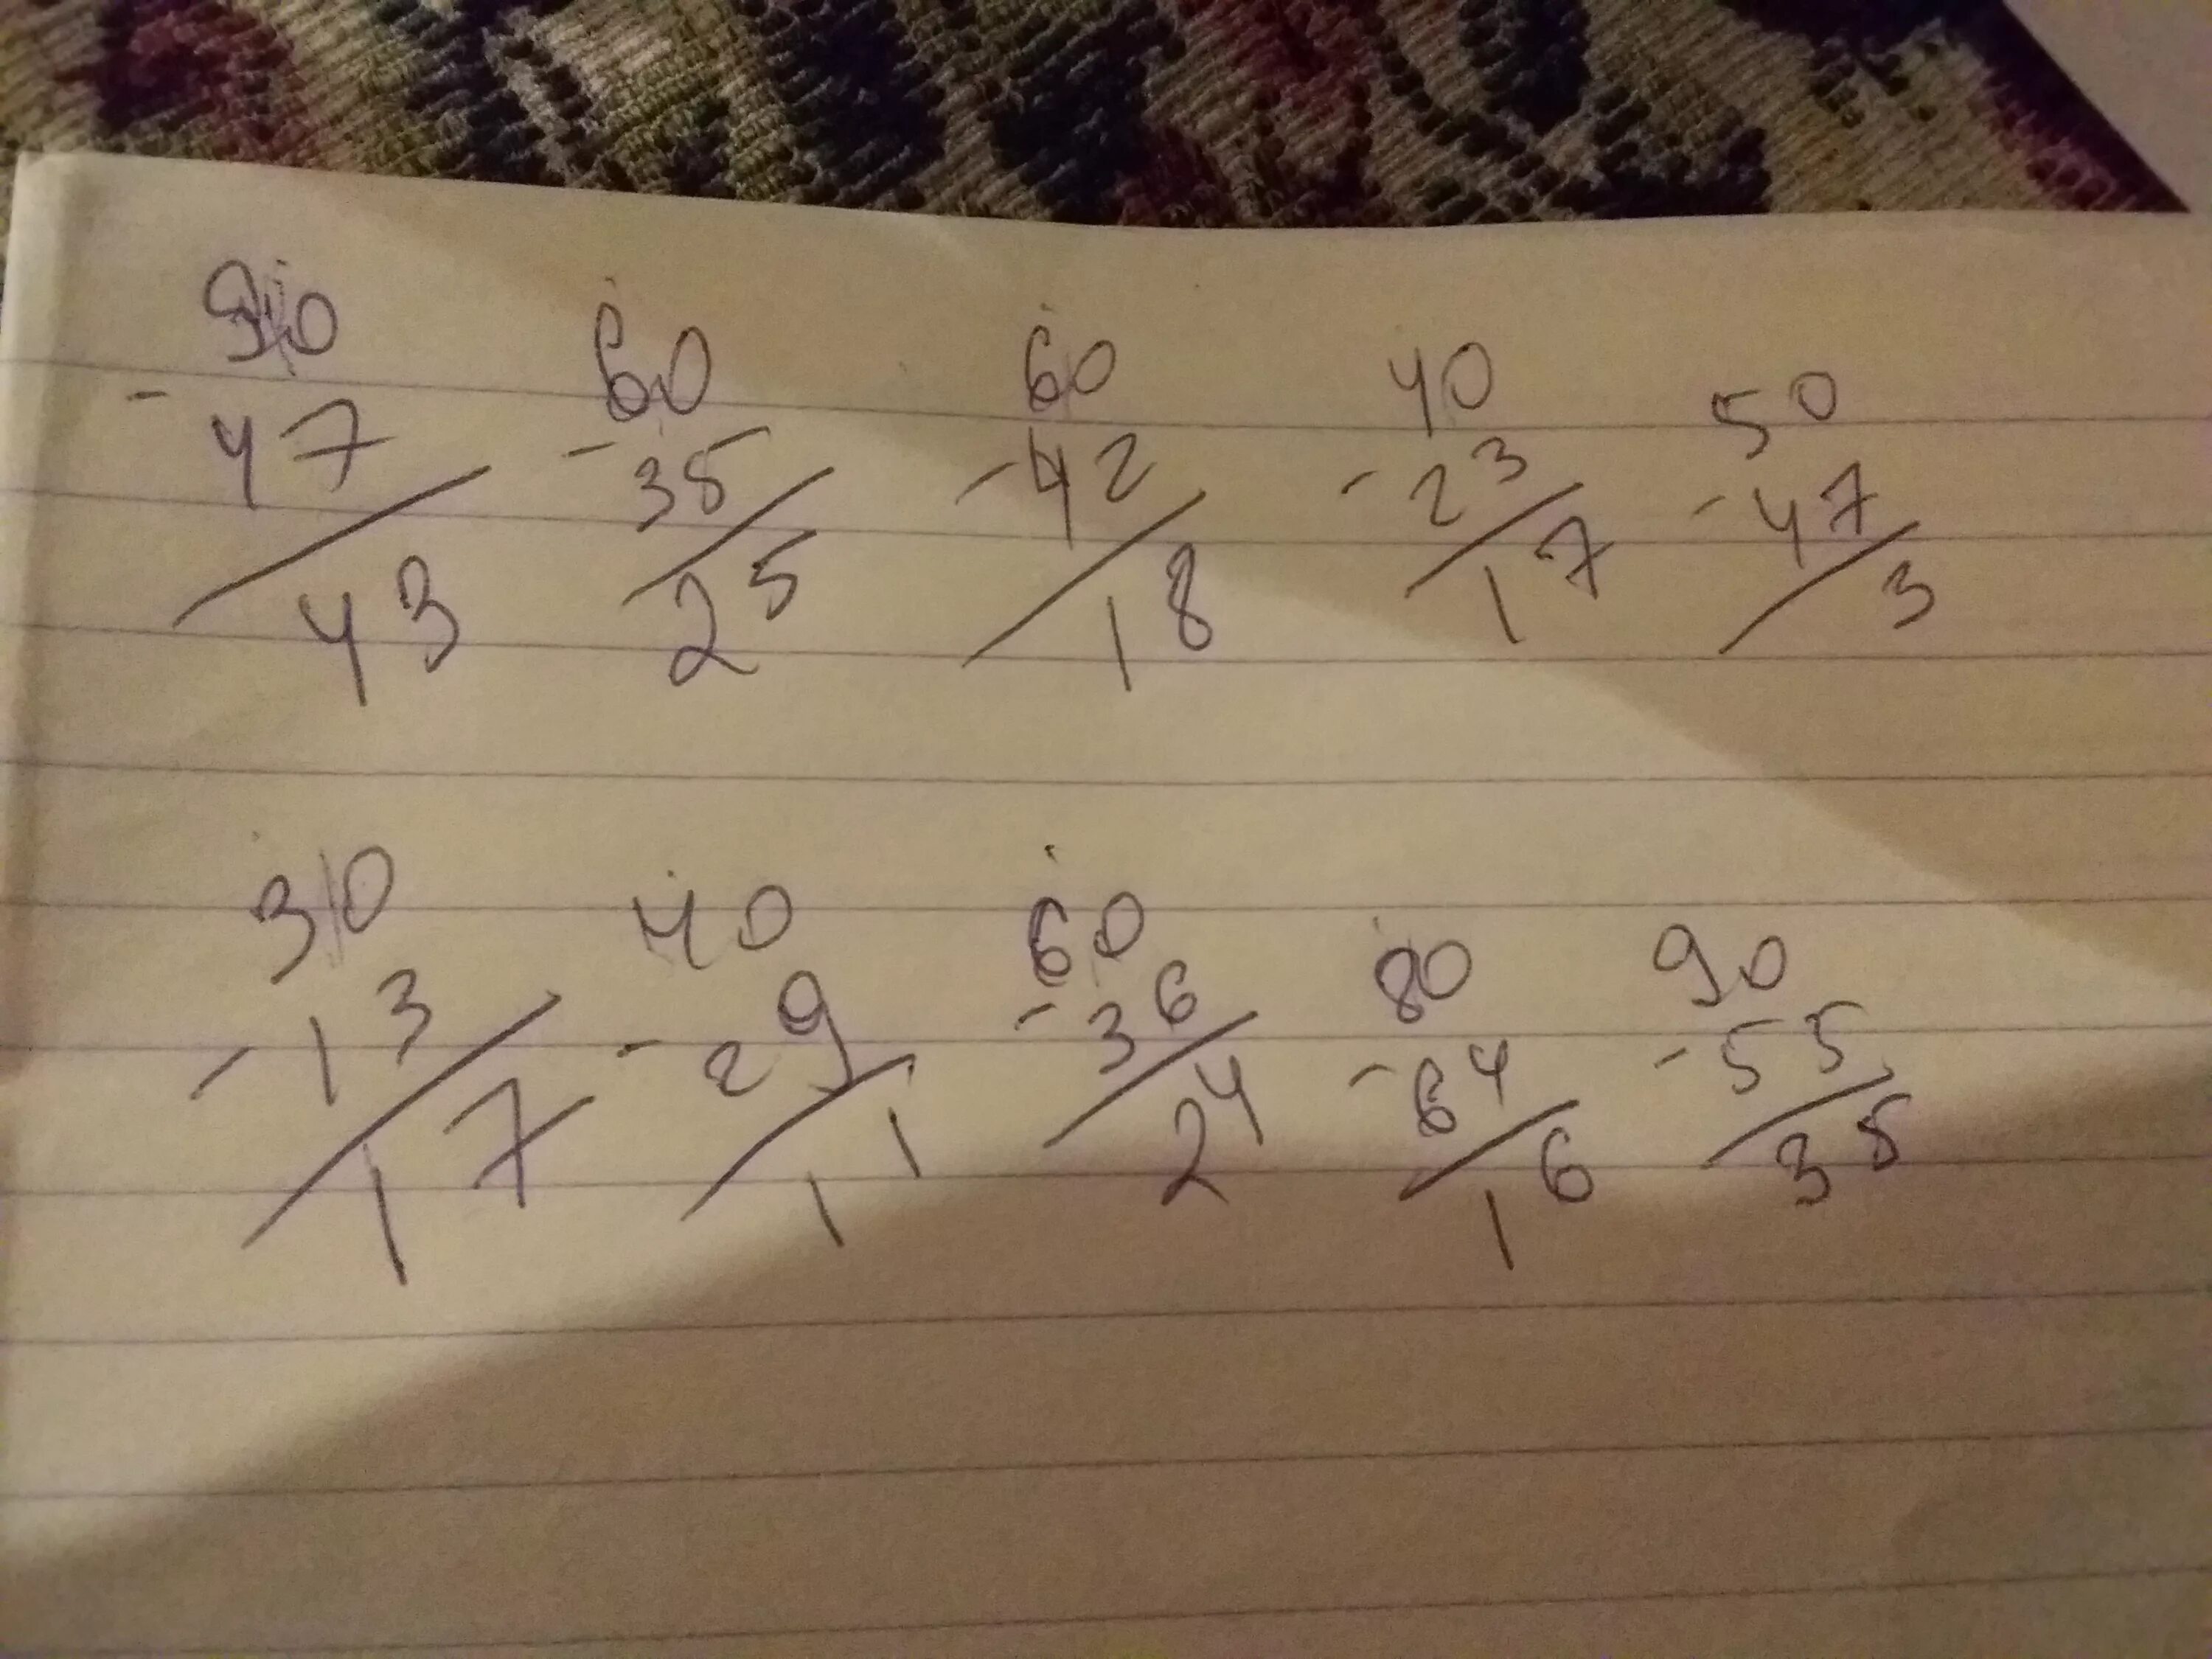 90 60 60 40 50
- 47 - 35 - 42 - 23 - 47
43 25 18 17 3
30 40 60 80 90
- 13 - 29 - 36 - 64 - 55
17 11 24 16 35